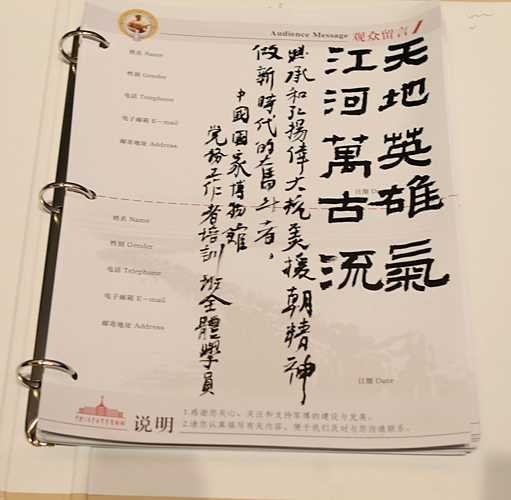 Audience Message 观众留言
天地英雄氣
江河萬古流
承和弘揚偉大抗美援朝精神
做新時代的奮斗者。
中國國家博物館
党務工作者培訓班全體學員
姓名 Name
性别 Gender
电话 Telephone
电子邮箱 E-mail
邮寄地址 Address
日期 D
姓名 Name
性别 Gender
电话 Telephone
电子邮箱 E-mail
邮寄地址 Address
日期 Date
说明
1.感谢您关心、关注和支持军博的建设与发展。
2.请您认真填写有关内容，便于我们及时与您沟通联系。